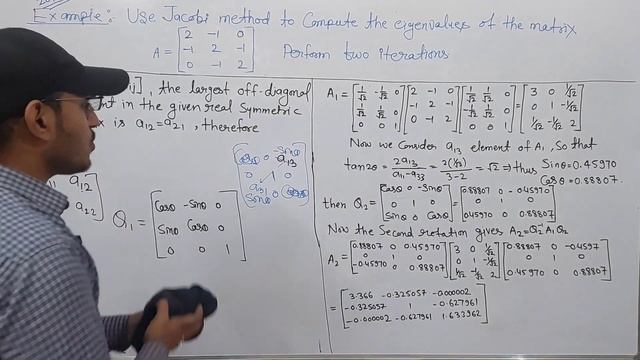 Example:- Use Jacobi method to Compute the eigenvalues of the matrix
A = [2 -1 0
-1 2 -1
0 -1 2] Perform two iterations
, the largest off-diagonal
in the given real Symmetric
is a12=a21, therefore
a12
a22
Q1 = [Cosθ -Sinθ 0
Sinθ Cosθ 0
0 0 1]
Cosθ 0 -Sinθ
a13
0 1 0
a31
Sinθ 0 Cosθ
A1 = [1/√2 -1/√2 0
1/√2 1/√2 0
0 0 1] [2 -1 0
-1 2 -1
0 -1 2] [1/√2 1/√2 0
-1/√2 1/√2 0
0 0 1] = [3 0 1/√2
0 1 -1/√2
1/√2 -1/√2 2]
Now we Consider a13 element of A1, So that
tan2θ = 2a13/(a11-a33) = 2(1/√2)/(3-2) = √2 ⇒ thus Sinθ=0.45970
Cosθ=0.88807
then Q2 = [Cosθ 0 -Sinθ
0 1 0
Sinθ 0 Cosθ] = [0.88807 0 -0.45970
0 1 0
0.45970 0 0.88807]
Now the Second rotation gives A2=Q2ᵀA1Q2
A2 = [0.88807 0 0.45970
0 1 0
-0.45970 0 0.88807] [3 0 1/√2
0 1 -1/√2
1/√2 -1/√2 2] [0.88807 0 -0.4597
0 1 0
0.45970 0 0.88807]
= [3.366 -0.325057 -0.000002
-0.325057 1 -0.627961
-0.000002 -0.627961 1.633962]